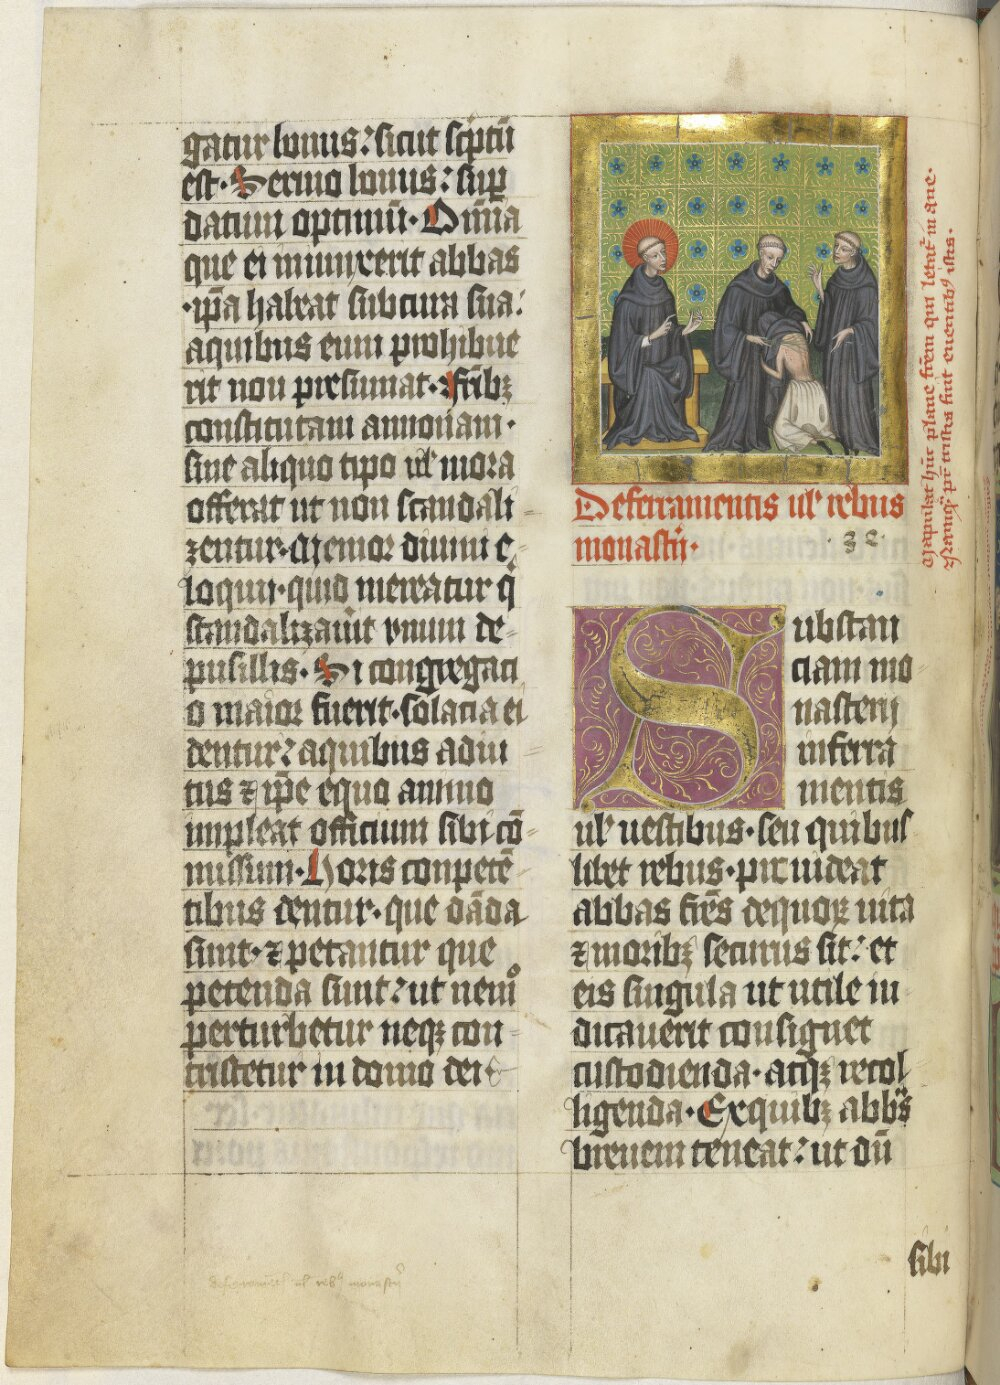 gatur bonus: sicut sc̄ptū
est. Sermo bonus: suꝑ
datum optimū. Omnia
que ei iniunxerit abbas
ip̄a habeat sub cura sua:
a quibus eum prohibue
rit non presumat. Fr̄ibꝫ
constitutam annonam.
sine aliquo tipo ul̄ mora
offerat ut non scandali
zentur. Memor diuini e
loquii. quid mereatur q̄
scandalizauit vnum de
pusillis. Si congregaci
o maior fuerit. solacia ei
dentur: a quibus adiu
tus ⁊ ip̄e equo animo
impleat officium sibi cō
missum. Horis conpetē
tibus dentur. que dāda
sunt. ⁊ petantur que
petenda sunt: ut nemo
perturbetur neqꝫ con
tristetur in domo dei
De ferramentis ul̄ rebus
monastīi.
Substan
ciam mo
nasterij
in ferra
mentis
ul̄ uestibus. seu quibus
libet rebus. prouideat
abbas fr̄es de quoꝝ uita
⁊ moribꝫ securus sit: et
eis singula ut utile iu
dicauerit consignet
custodienda. atqꝫ recol
ligenda. Ex quibꝫ abb̄s
breuem teneat: ut dū
sibi